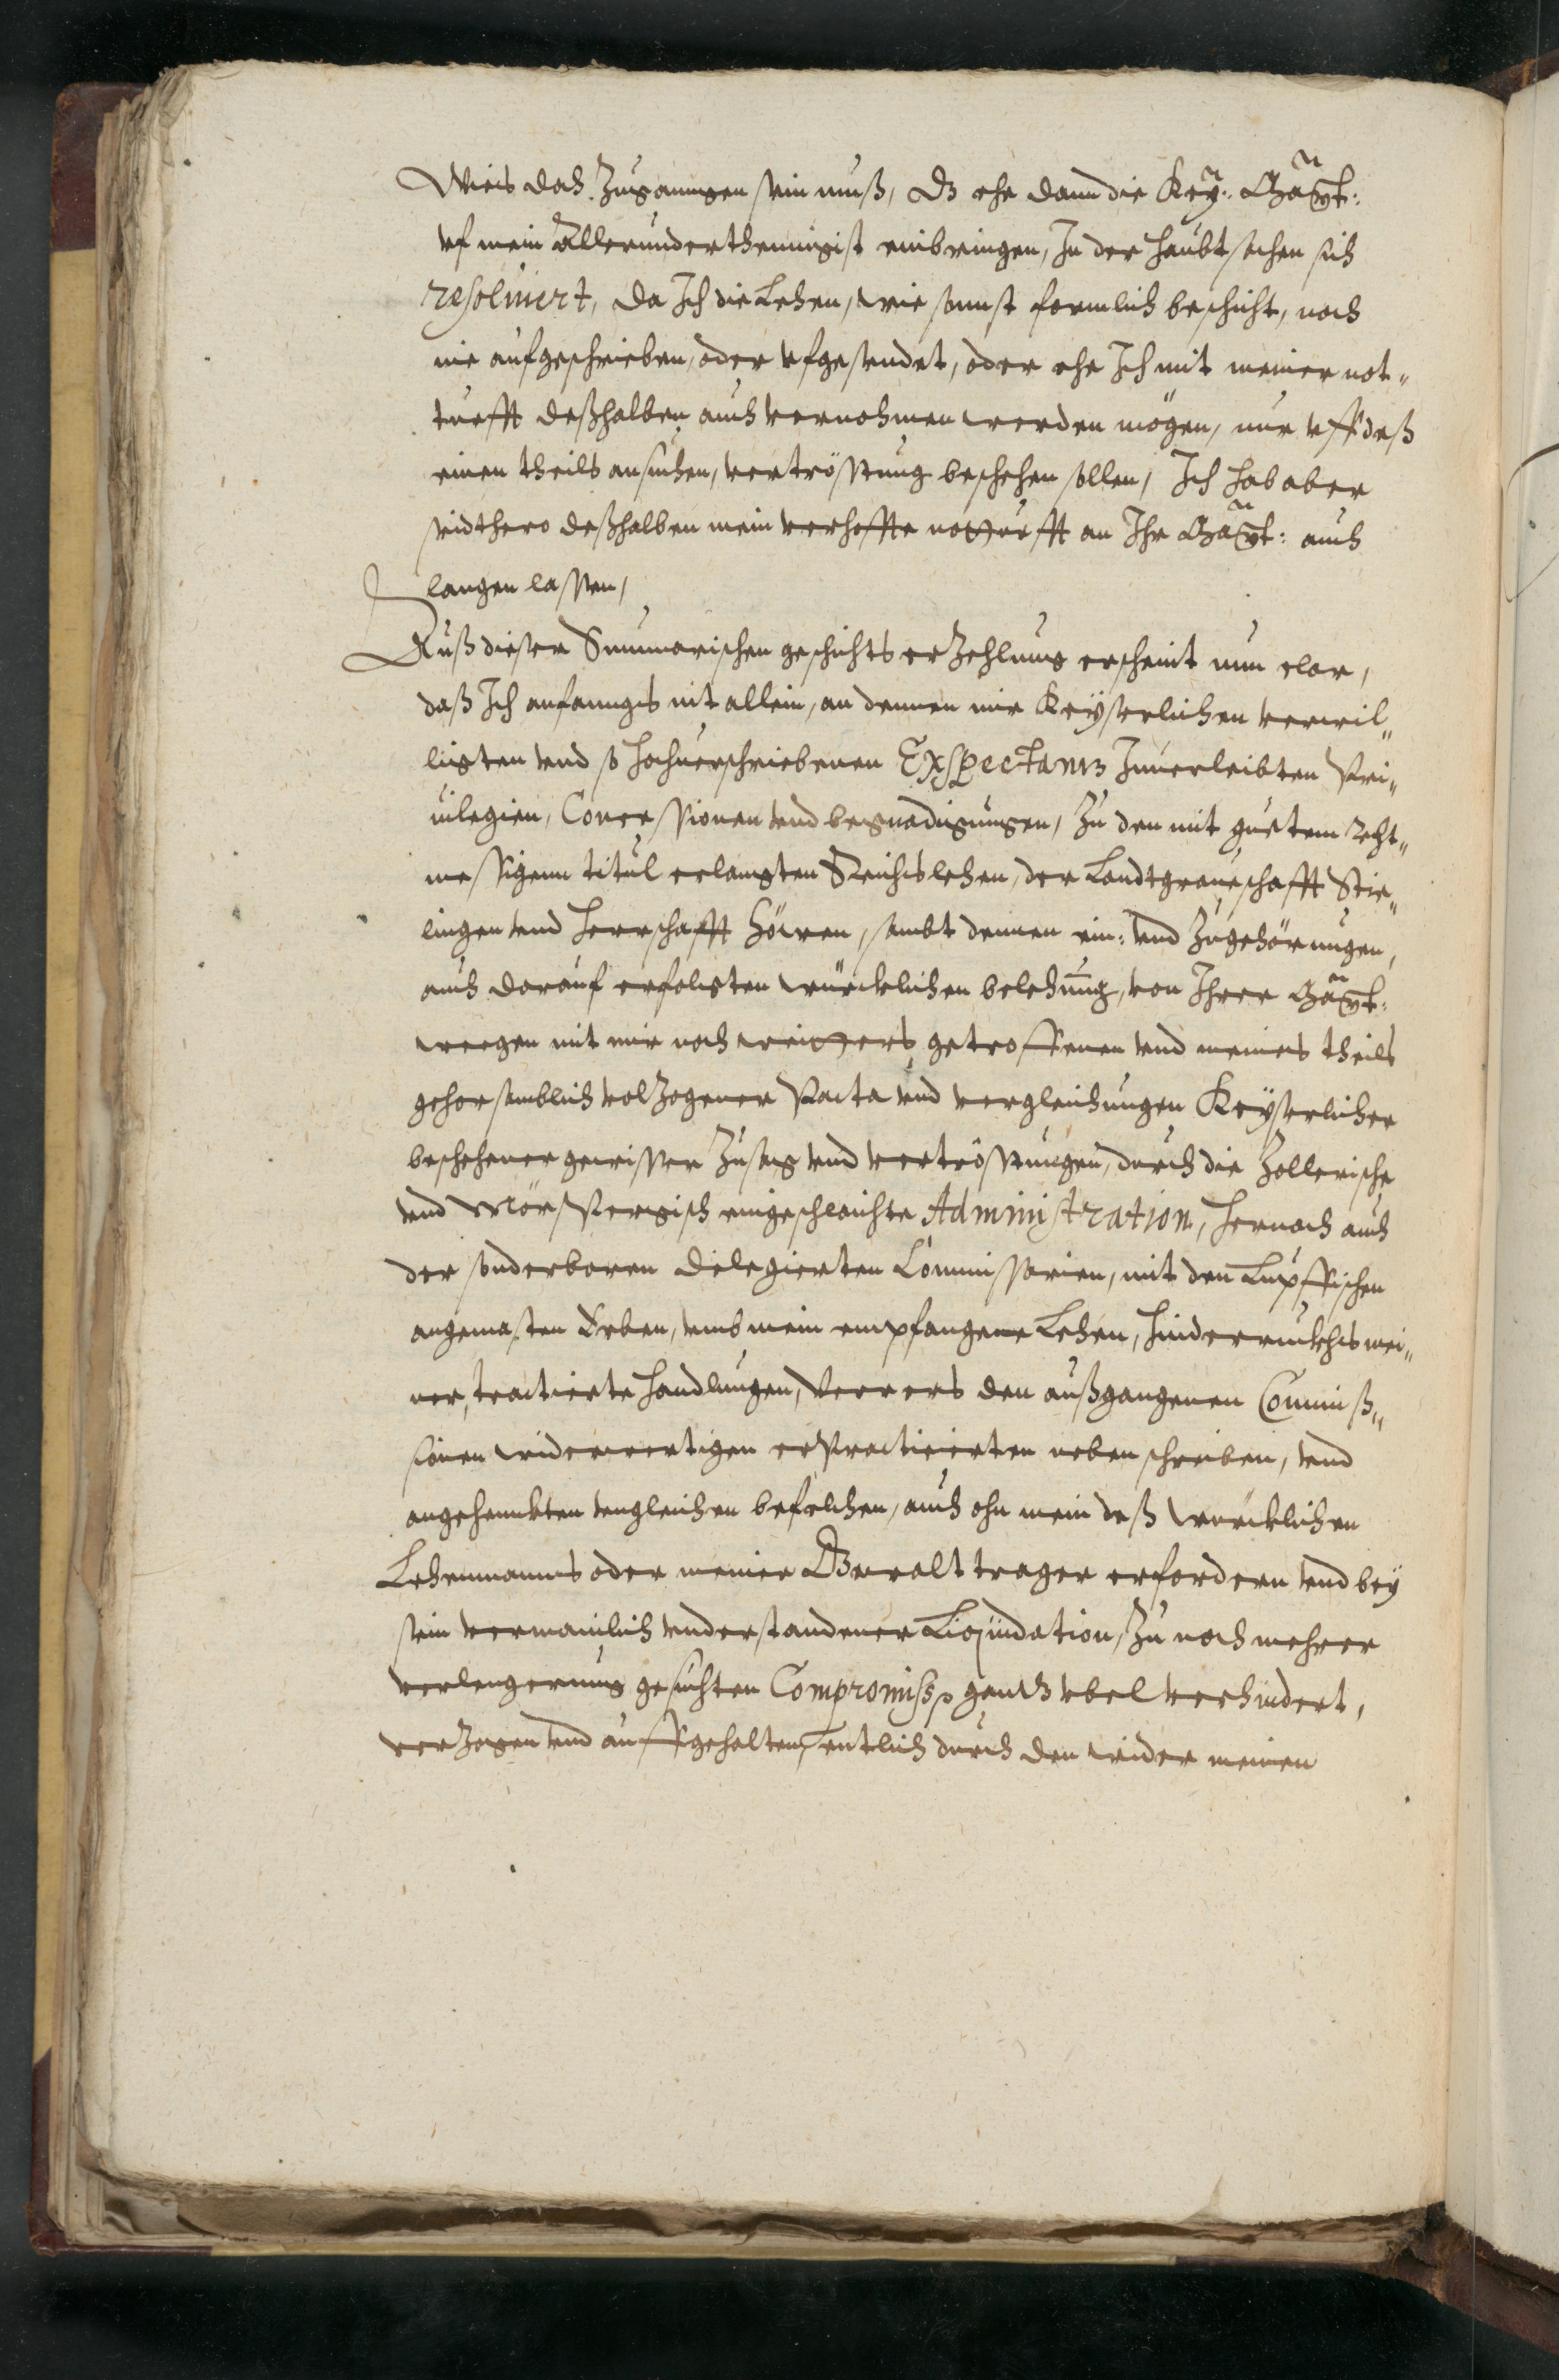 Weis das zugangen sein muß, Dz ehe dann die Key: Maÿt:
vf mein Allerunderthenigist einbringen, In der haubtsachen sich
resoluiert, da Ich die Lehen, wie sonnst formlich beschicht, noch
nie aufgeschrieben, oder vfgesendet, oder ehe Ich mit meiner not-
turfft deßhalben auch vernohmen werden mögen, nur vff deß
einen theils ansuchen, vertröstung beschehen sollen, Ich hab aber
seidthero deßhalben mein verhoffte notturfft an Ihr Maÿt: auch
langen lassen,
Auß dieser Summarischen geschichts erzehlung erscheint nun clar,
daß Ich anfanngs nit allein, an dennen mir Keyserlichen verwil-
ligten vnd so hochuerschriebenen Exspectantz Inuerleibten Pri-
uilegien, Concessionen vnd begnadigungen, zu den mit guetem Recht-
messigem titul erlangten Reichslehen, der Landtgraueschafft Stie-
lingen vnd Herrschafft Höwen, sambt dennen ein: vnd zugehörungen,
auch darauf erfolgten würcklichen belehnung, von Ihrer Maÿt:
wegen mit mir noch weitters getroffenen vnd meines theils
gehorsamblich volzogener Pacta vnd vergleichungen Keyserlicher
beschehener gewisser Zusag vnd vertröstungen, durch die Zollerische
vnd Mörspergisch eingeschleichte Administration, hernach auch
der sonderbaren deligierten Commissarien, mit den Lupffischen
angemasten Erben, vmb mein empfangene Lehen, hinderruckhs mei-
ner, tractierte handlungen, Verrers den außgangenen Commiß-
sionen widerwertigen erpracticierten neben schreiben, vnd
angehenckten vngleichen befelchen, auch ohn mein deß würcklichen
Lehenmanns oder meiner Gewalt trager erfordern vnd bey
sein vermainlich vnderstandener Liquidation, zu noch mehrer
verlengerung gesuchten Compromiss, gantz vbel verhindert,
verzogen vnd auffgehalten, entlich durch den wider meinen